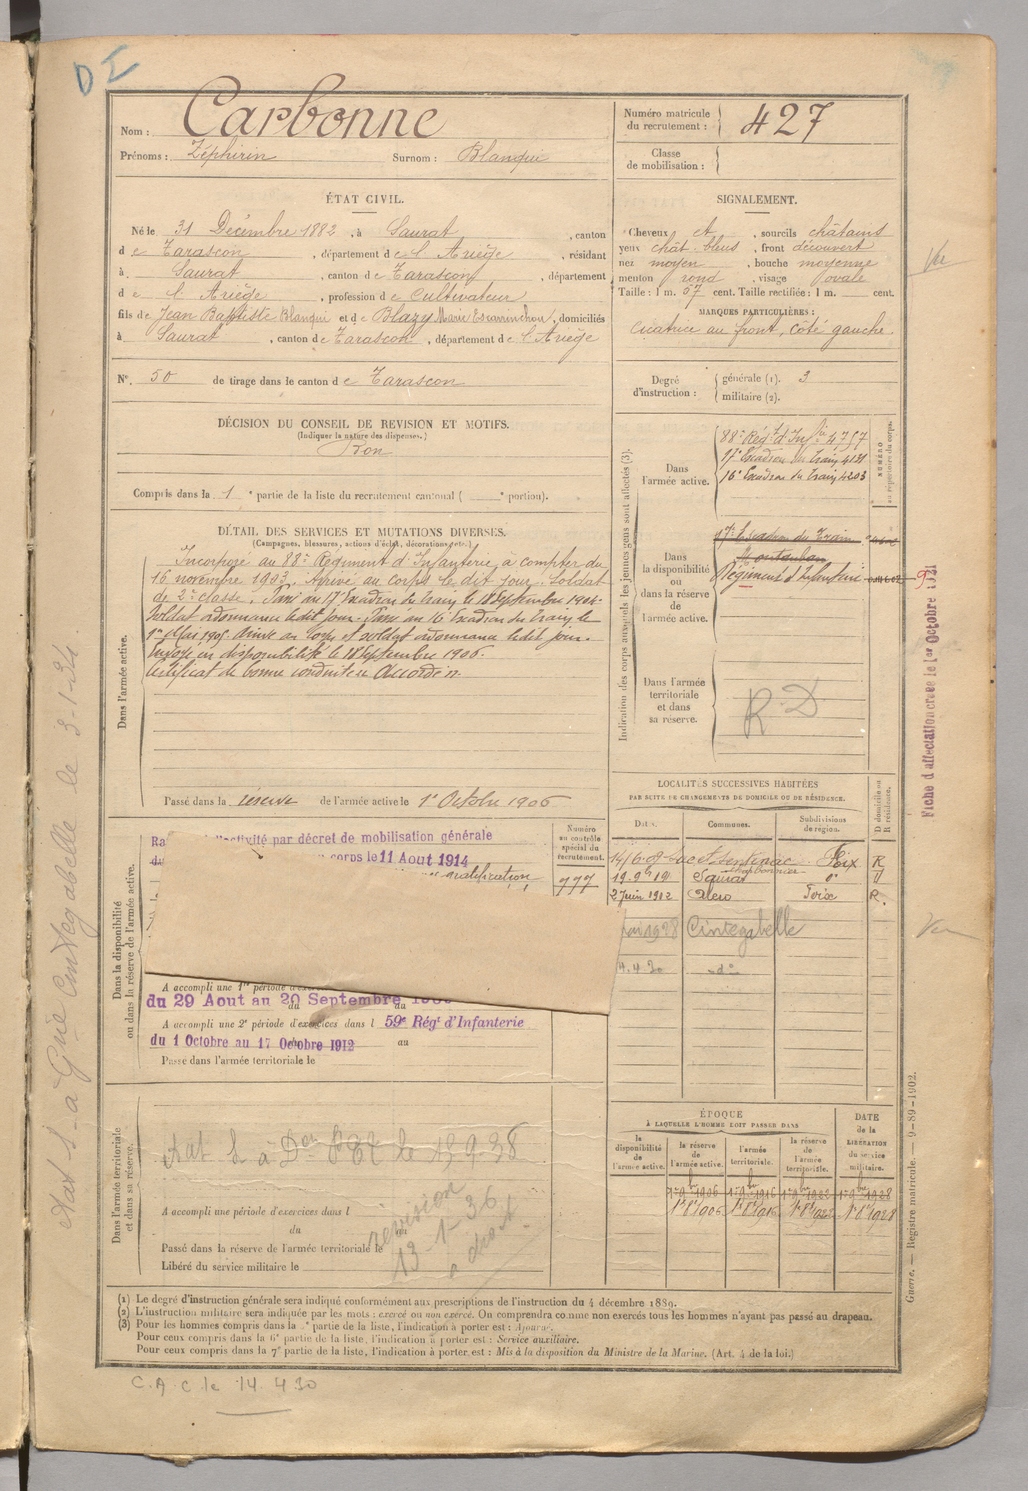 Nom : Carbonne
Prénoms : Zéphirin Surnom : Blanqui
Numéro matricule du recrutement : 427
Classe de mobilisation :
ÉTAT CIVIL.
Né le 31 Décembre 1882, à Saurat, canton
d e Tarascon, département d e l'Ariège, résidant
à Saurat, canton d e Tarascon, département
d e l'Ariège, profession d e Cultivateur
fils de Jean Baptiste Blanqui et d e Blazy Marie Escarrinchou, domiciliés
à Saurat, canton d e Tarascon, département d e l'Ariège
N°. 50 de tirage dans le canton d e Tarascon
SIGNALEMENT.
Cheveux ct, sourcils châtains
yeux chât. bleus, front découvert
nez moyen, bouche moyenne
menton rond, visage ovale
Taille : 1 m. 57 cent. Taille rectifiée : 1 m. cent.
MARQUES PARTICULIÈRES :
Cicatrice au front, côté gauche.
Degré d'instruction : générale (1). 3
militaire (2).
DÉCISION DU CONSEIL DE REVISION ET MOTIFS.
(Indiquer la nature des dispenses.)
Bon
Compris dans la 1e partie de la liste du recrutement cantonal ( e portion).
DÉTAIL DES SERVICES ET MUTATIONS DIVERSES.
(Campagnes, blessures, actions d'éclat, décorations, etc.)
Dans l'armée active.
Incorporé au 88e Régiment d'Infanterie à compter du
16 novembre 1903. Arrivé au corps le dit jour. Soldat
de 2e classe. Passé au 17e Escadron du train le 18 Septembre 1904.
Soldat ordonnance ledit jour. Passé au 16e Escadron du Train le
1er Mai 1905. Arrivé au Corps et soldat ordonnance ledit jour.
Envoyé en disponibilité le 18 Septembre 1906.
Certificat de bonne conduite "Accordé".
Passé dans la réserve de l'armée active le 1er Octobre 1906
Indication des corps auxquels les jeunes gens sont affectés (3).
NUMÉRO au répertoire du corps.
Dans l'armée active.
88e Régt d'Inf.ie 4757
17e Escadron du train 4131
16e Escadron du train 4203
Dans la disponibilité ou dans la réserve de l'armée active.
17e Escadron du Train
Montauban
Régiment d'Infanterie
Dans l'armée territoriale et dans sa réserve.
R. D
Fiche d'affectation créée le 1er Octobre 1921
LOCALITÉS SUCCESSIVES HABITÉES
PAR SUITE DE CHANGEMENTS DE DOMICILE OU DE RÉSIDENCE.
Dates. Communes. Subdivisions de région. D domicile ou R résidence.
14/6-08 Suc et Sentenac Foix R
Saurat d°
2 Juin 1912 Foix R.
1928 Cintegabelle
4.4.30 -d°-
Dans la disponibilité ou dans la réserve de l'armée active.
Numéro au contrôle spécial du recrutement.
777
l'activité par décret de mobilisation générale
corps le 11 Aout 1914
gratification
A accompli une 1re période d'exercices
du 29 Aout au 20 Septembre
A accompli une 2e période d'exercices dans l 59e Régt d'Infanterie
du 1 Octobre au 17 Octobre 1912 au
Passé dans l'armée territoriale le
Dans l'armée territoriale et dans sa réserve.
le 13-9-38
A accompli une période d'exercices dans l
du au
Passé dans la réserve de l'armée territoriale le
Libéré du service militaire le
revision
13-1-36
a droit
ÉPOQUE
À LAQUELLE L'HOMME DOIT PASSER DANS
DATE de la LIBÉRATION du service militaire.
la disponibilité de l'armée active. la réserve de l'armée active. l'armée territoriale. la réserve de l'armée territoriale.
1er 9bre 1906 1er 9bre 1916 1er 9bre 1922 1er 9bre 1928
1er 8bre 1906 1er 8bre 1916 1er 8bre 1922 1er 8bre 1928
(1) Le degré d'instruction générale sera indiqué conformément aux prescriptions de l'instruction du 4 décembre 1889.
(2) L'instruction militaire sera indiquée par les mots : exercé ou non exercé. On comprendra comme non exercés tous les hommes n'ayant pas passé au drapeau.
(3) Pour les hommes compris dans la e partie de la liste, l'indication à porter est : Ajourné.
Pour ceux compris dans la 6e partie de la liste, l'indication à porter est : Service auxiliaire.
Pour ceux compris dans la 7e partie de la liste, l'indication à porter est : Mis à la disposition du Ministre de la Marine. (Art. 4 de la loi.)
Guerre. — Registre matricule. — 9-89-1902.
C. A. C. le 14. 4 30
Cintegabelle le 3-1-34.